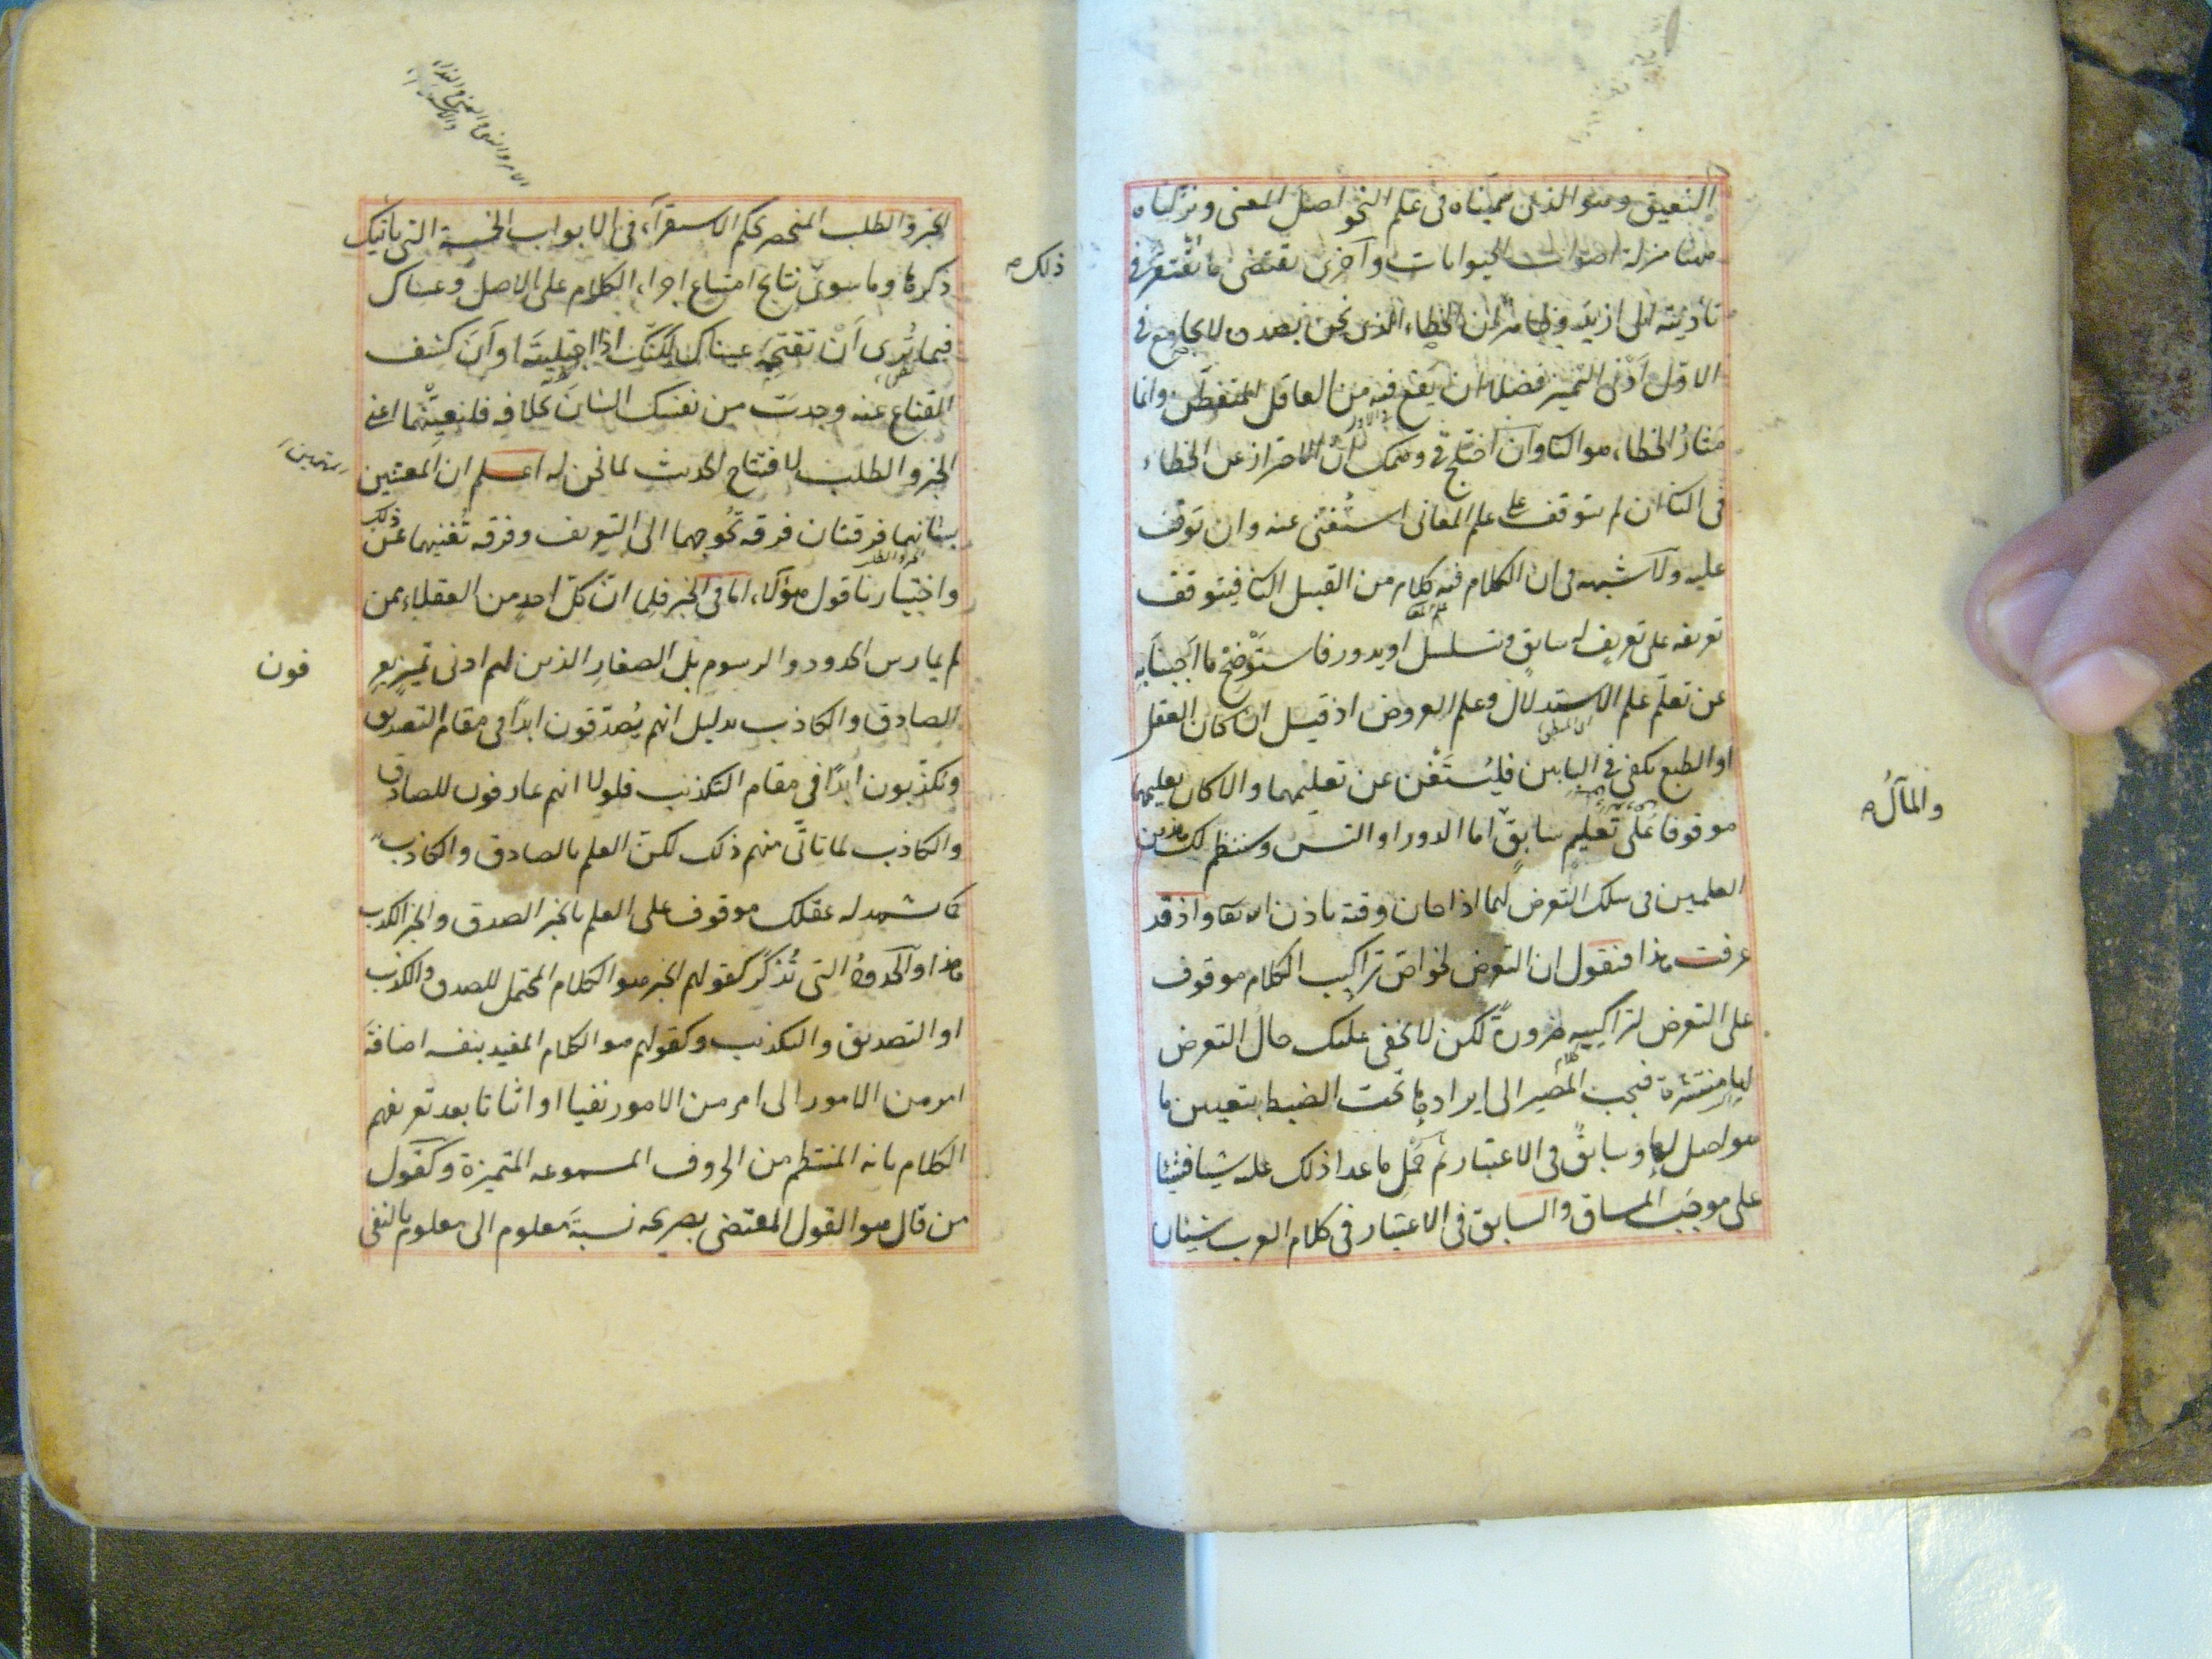 النعيق وهو الذى سميناه فى علم النحو اصل المعنى ونزلناه
ههنا منزلة اصوات الحيوانات وآخرى تقتضى ما تفتقر فى
تأديته الى ازيد وظاهر ان الخطاء الذى نحن بصدده لا يجامع فى
الاول ادنى التميز فضلا ان يقع فيه من العاقل المتفطن وانما
مثار الخطاء هو الثانى وان اختلج فى وهمك ان الاحتراز عن الخطاء
فى الثانى ان لم يتوقف على علم المعانى استغنى عنه وان توقف
عليه ولا شبهه فى ان الكلام فيه كلام من القبيل الثانى فيتوقف
تعريفه على تعريف له سابق وتسلسل او يدور فاستوضح ما اجبنا به
عن تعلم علم الاستدلال وعلم العروض اذ قيل ان كان العقل
او الطبع يكفى فى البابين فليستغن عن تعليمهما والا كان تعليمهما
موقوفا على تعليم سابق اما الدور او التس وسننظم لك هذين
العلمين فى سلك التعرض لهما اذا حان وقته باذن الله تعالى واذ قد
عرفت هذا فنقول ان التعرض لخواص تراكيب الكلام موقوف
على التعرض لتراكيبه ضرورة لكن لا يخفى عليك حال التعرض
لها منتشرة فيجب المصير الى ايرادها تحت الضبط بتعيين ما
هو اصل لها وسابق فى الاعتبار ثم حمل ما عدا ذلك عليه شيئا فشيئا
على موجب المساق والسابق فى الاعتبار فى كلام العرب شيئان
والمآل صح
الخبر والطلب المنحصر بحكم الاستقراء فى الابواب الخمسة التى يأتيك
ذكرها وما سوى نتايج امتناع اجراء الكلام على الاصل وعساك
ذلك صح
فيما ترى ان تقتحمه عيناك لكنك اذا اجتليته اوان كشف
القناع عنه وجدت من نفسك الشان بخلافه فلنعينهما اعنى
الخبر والطلب لافتتاح الحديث لما نحن له اعلم ان المعتنين
بشانهما فرقتان فرقه تحوجهما الى التعريف وفرقه تغنيهما عن ذلك
واختيارنا قول هؤلاء اما فى الخبر فلما ان كل احد من العقلاء ممن
لم يمارس الحدود والرسوم بل الصغار الذين لهم ادنى تميز يعر
فون
الصادق والكاذب بدليل انهم يصدقون ابدا فى مقام التصديق
ويكذبون ابدا فى مقام التكذيب فلولا انهم عارفون للصادق
والكاذب لما تأتى منهم ذلك لكن العلم بالصادق والكاذب
كما شهد له عقلك موقوف على العلم بالخبر الصدق والخبر الكذب
هذا والحدود التى تذكر كقولهم الخبر هو الكلام المحتمل للصدق والكذب
او التصديق والتكذيب وكقولهم هو الكلام المفيد بنفسه اضافة
امر من الامور الى امر من الامور نفيا او اثباتا بعد تعريفهم
الكلام بانه المنتظم من الحروف المسموعه المتميزة وكقول
من قال هو القول المقتضى بصريحه نسبة معلوم الى معلوم بالنفى